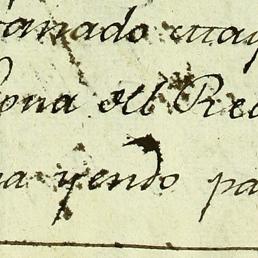 anado may
ona del Re
a yendo pa